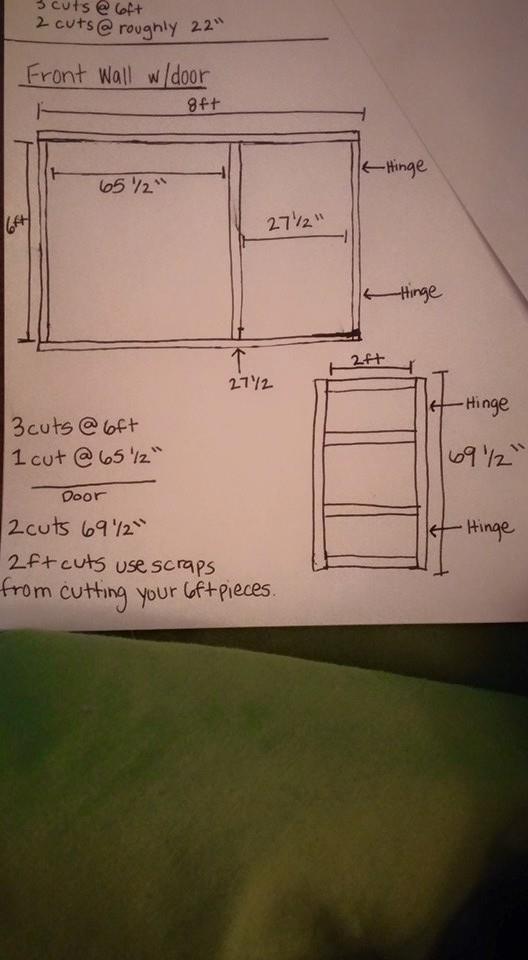 3 cuts @ 6ft
2 cuts @ roughly 22"
Front Wall w/door
8ft
Hinge
65 1/2"
6ft
27 1/2"
Hinge
27 1/2
2ft
Hinge
3 cuts @ 6ft
1 cut @ 65 1/2"
69 1/2"
Door
2 cuts 69 1/2"
Hinge
2ft cuts use scraps
from cutting your 6ft pieces.